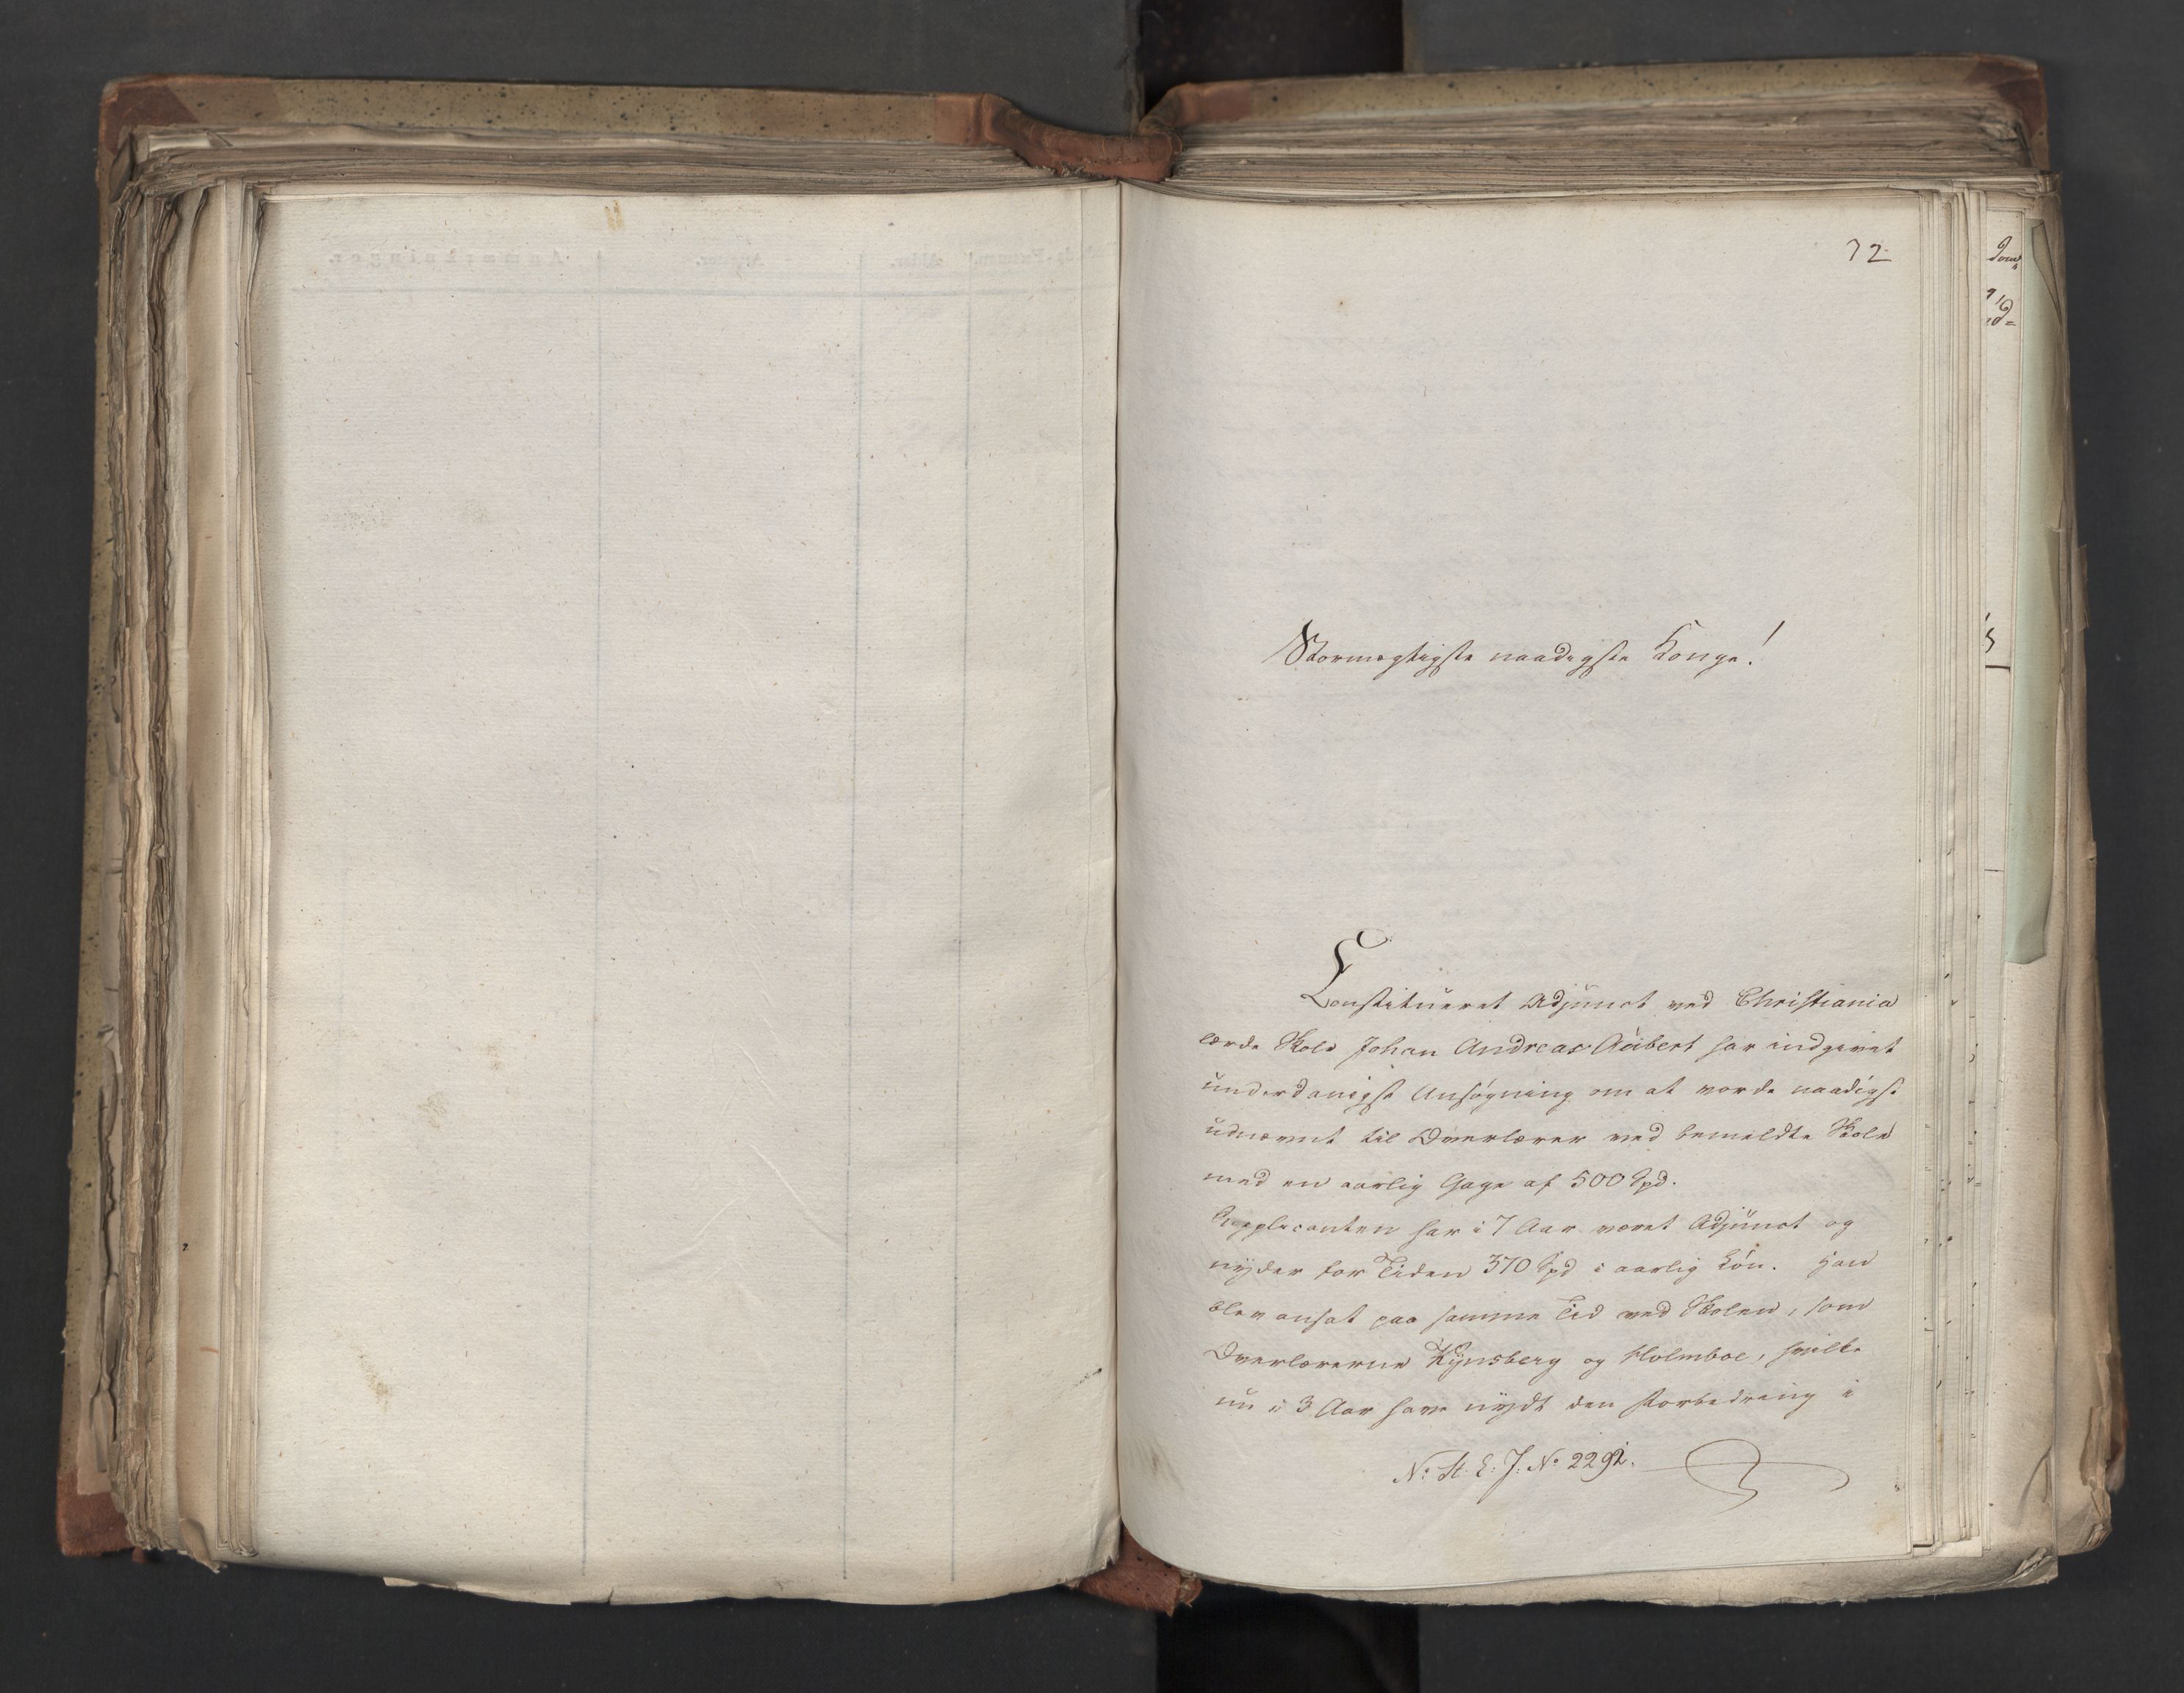 32
Stormægtigste naadigste Konge!
Constitueret Adjunct ved Christiania
lærde Skole Johan Andreas Aubert har indgivet
underdanigst Ansøgning om at vorde naadigst
udnævnt til Overlærer ved bemeldte Skole
med en aarlig Gage af 500 Spd.
Supplicanten har i 7 Aar været Adjunct og
nyder for Tiden 370 Spd i aarlig Løn. Han
blev ansat paa samme Tid ved Skolen, som
Overlærerne Rynsberg og Holmboe, hvilke
nu i 3 Aar have nydt den Forbedring i
N: St. E: J: No 2292.